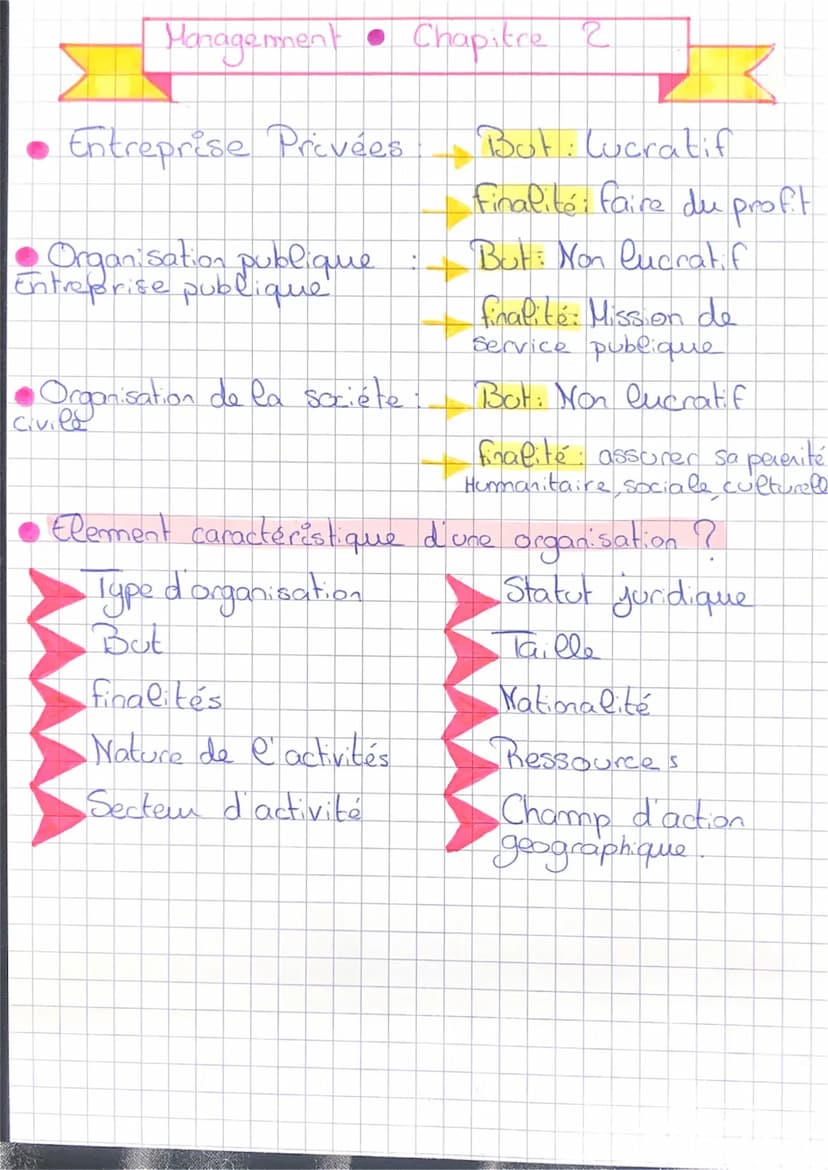 Management • Chapitre 2
• Entreprise Privées : → But : lucratif
→ finalité : faire du profit
• Organisation publique : → But : Non lucratif
Entreprise publique
→ finalité : Mission de
service publique
• Organisation de la sociéte : → But : Non lucratif
civile
→ finalité : assurer sa pérenité
Humanitaire, sociale, culturelle
• Element caractéristique d'une organisation ?
Type d'organisation
But
finalités
Nature de l'activités
Secteur d'activité
Statut juridique
Taille
Nationalité
Ressources
Champ d'action
geographique.